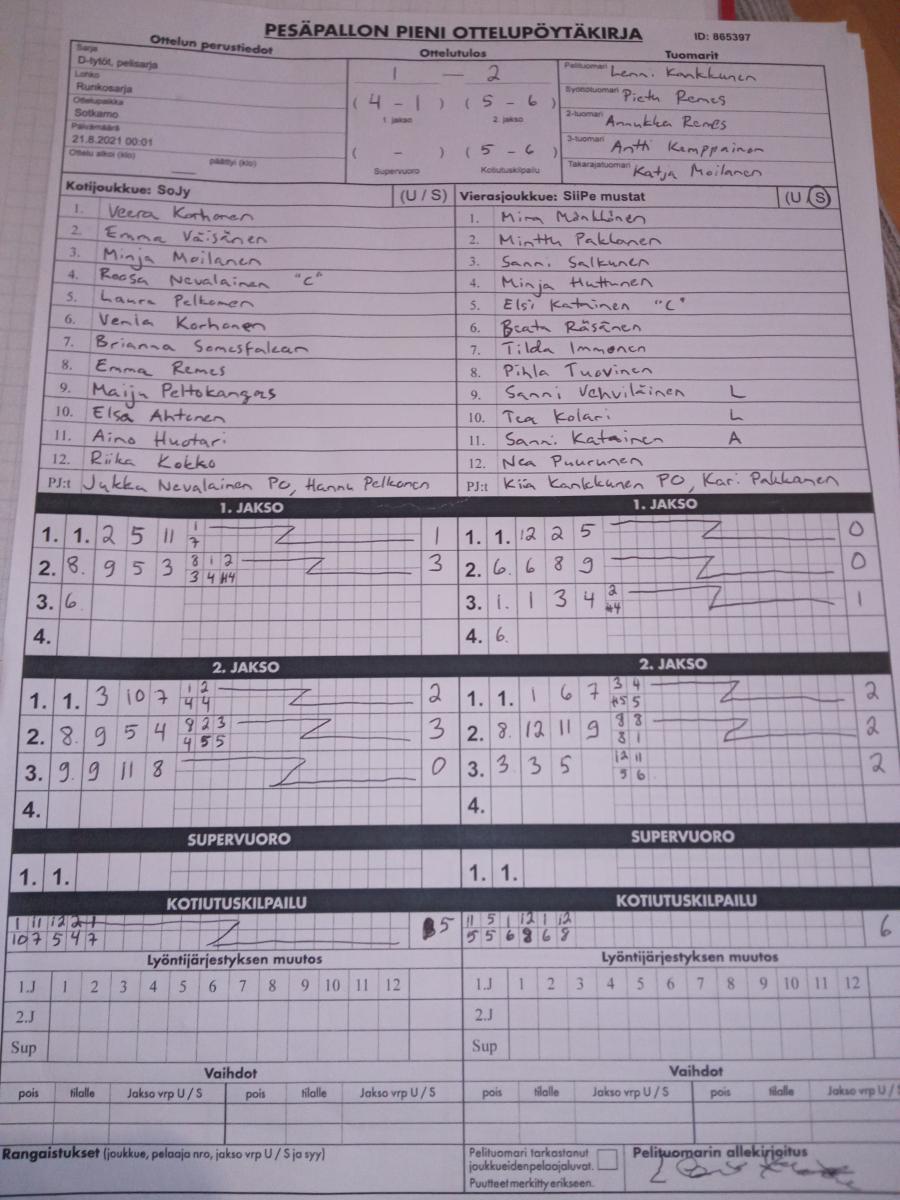 PESÄPALLON PIENI OTTELUPÖYTÄKIRJA ID: 865397
Ottelun perustiedot Ottelutulos Tuomarit
Sarja
D-tytöt, pelisarja
Lohko
Runkosarja
Ottelupaikka
Sotkamo
Päivämäärä
21.8.2021 00:01
Ottelu alkoi (klo) päättyi (klo)
1 — 2
( 4 - 1 ) ( 5 - 6 )
1. jakso 2. jakso
( - ) ( 5 - 6 )
Supervuoro Kotiutuskilpailu
Pelituomari Lenni Kankkunen
Syöttötuomari Pietu Remes
2-tuomari Annukka Remes
3-tuomari Antti Kemppainen
Takarajatuomari Katja Moilanen
Kotijoukkue: SoJy (U / S) Vierasjoukkue: SiiPe mustat (U / S)
1. Veera Korhonen 1. Mira Mönkkönen
2. Emma Väisänen 2. Minttu Pakkanen
3. Minja Moilanen 3. Sanni Salkunen
4. Roosa Nevalainen "C" 4. Minja Huttunen
5. Laura Pelkonen 5. Elsi Katainen "C"
6. Venla Korhonen 6. Beata Räsänen
7. Brianna Somesfalean 7. Tilda Immonen
8. Emma Remes 8. Pihla Tuovinen
9. Maiju Peltokangas 9. Sanni Vehviläinen L
10. Elsa Ahtonen 10. Tea Kolari L
11. Aino Huotari 11. Sanni Katainen A
12. Riika Kokko 12. Nea Puurunen
PJ:t Jukka Nevalainen PO, Hannu Pelkonen PJ:t Kiia Kankkunen PO, Kari Pakkanen
1. JAKSO 1. JAKSO
1. 1. 2 5 11 1 7 1 1. 1. 12 2 5 0
2. 8. 9 5 3 8 1 2 3 4 #4 3 2. 6. 6 8 9 0
3. 6. 3. 1. 1 3 4 2 #4 1
4. 4. 6.
2. JAKSO 2. JAKSO
1. 1. 3 10 7 1 2 4 4 2 1. 1. 1 6 7 3 4 #5 5 2
2. 8. 9 5 4 8 2 3 4 5 5 3 2. 8. 12 11 9 8 8 8 1 2
3. 9. 9 11 8 0 3. 3 3 5 12 11 5 6 2
4. 4.
SUPERVUORO SUPERVUORO
1. 1. 1. 1.
KOTIUTUSKILPAILU KOTIUTUSKILPAILU
1 11 12 2 1 5 11 5 1 12 1 12 6
10 7 5 4 7 5 5 6 8 6 8
Lyöntijärjestyksen muutos Lyöntijärjestyksen muutos
1.J 1 2 3 4 5 6 7 8 9 10 11 12 1.J 1 2 3 4 5 6 7 8 9 10 11 12
2.J 2.J
Sup Sup
Vaihdot Vaihdot
pois tilalle Jakso vrp U / S pois tilalle Jakso vrp U / S pois tilalle Jakso vrp U / S pois tilalle Jakso vrp U / S
Rangaistukset (joukkue, pelaaja nro, jakso vrp U / S ja syy)
Pelituomari tarkastanut
joukkueiden pelaajaluvat.
Puutteet merkitty erikseen.
Pelituomarin allekirjoitus